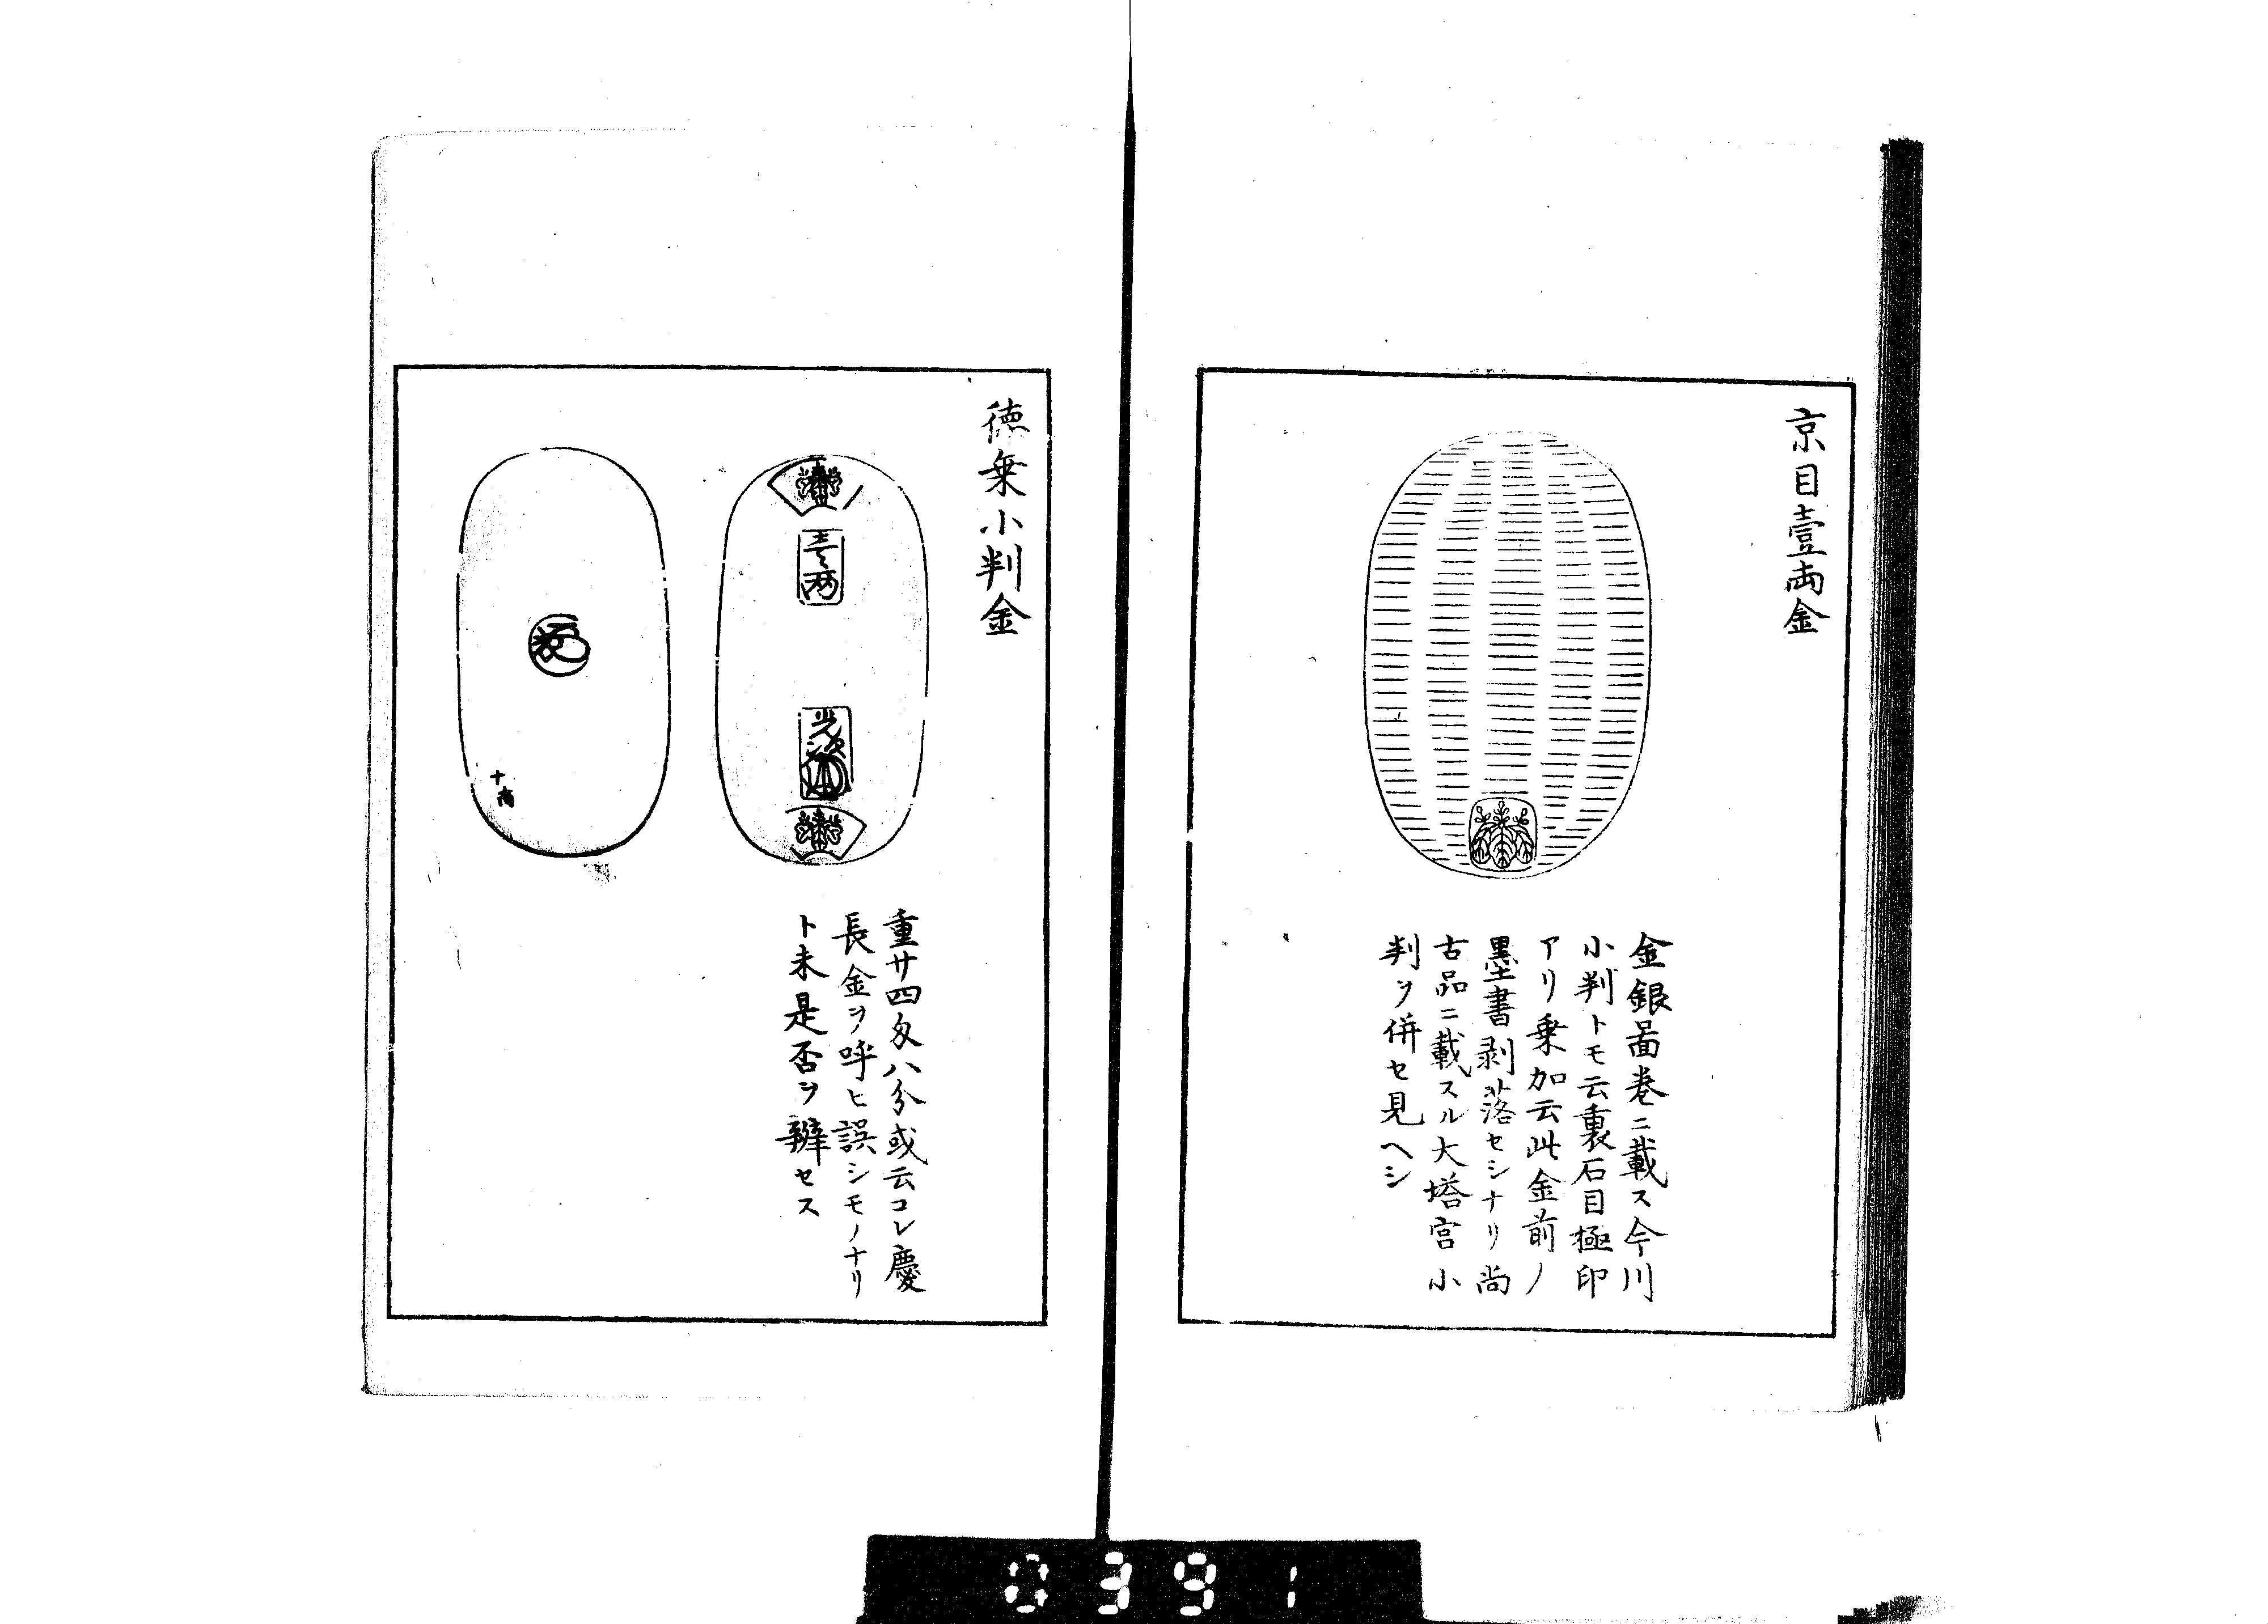 京目壹両金
金銀啚巻ニ載ス今川
小判トモ云重裏石目極印
アリ乗加云此金前ノ
墨書剥落セシナリ尚
古品ニ載スル大塔宮小
判ヲ併セ見ヘシ
徳乗小判金
壱両
光次
十
重廿四匁八分或云コレ慶
長金ヲ呼ヒ誤シモノナリ
ト未是否ヲ辨セス
0391